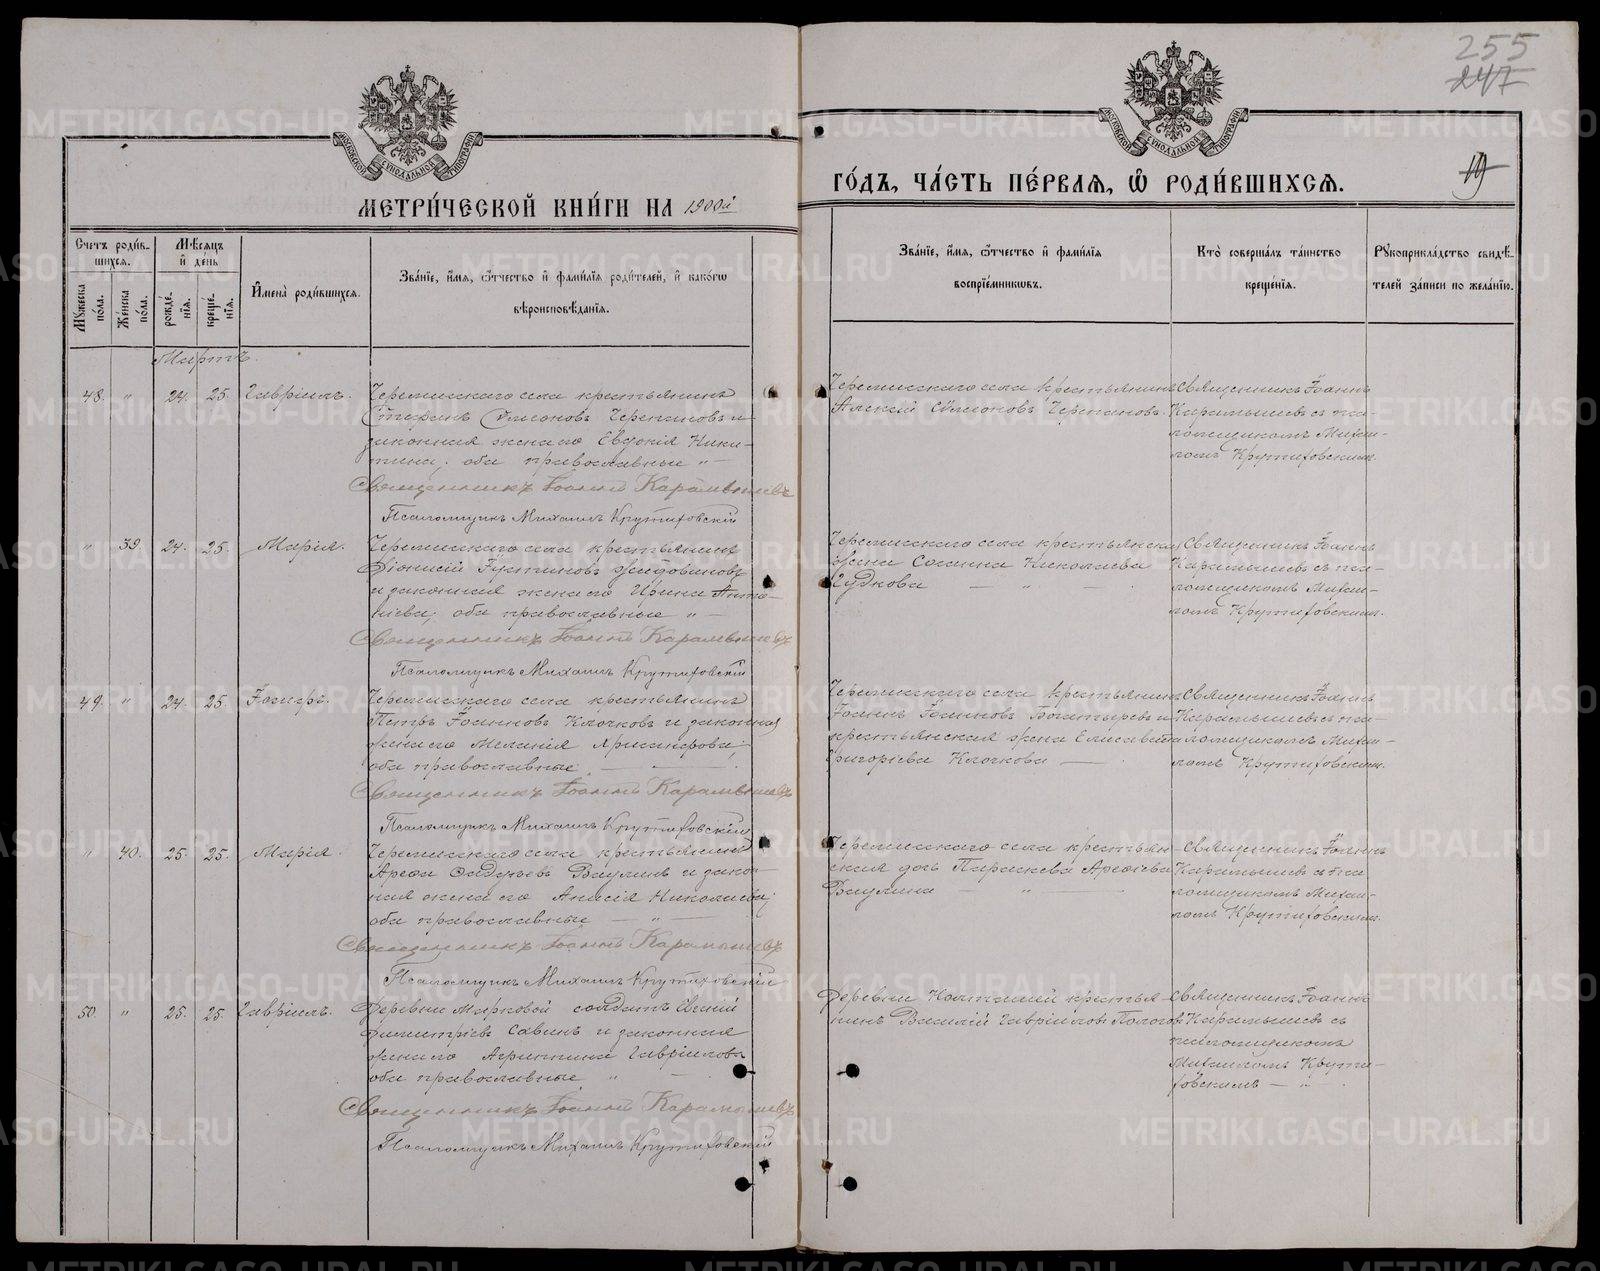 255
247
19
МОСКОВСКОЙ СѴНОДАЛЬНОЙ ТИПОГРАФІИ
МОСКОВСКОЙ СѴНОДАЛЬНОЙ ТИПОГРАФІИ
МЕТРИ́ЧЕСКОЙ КНИ́ГИ НА 1900й
ГО́ДЪ, ЧА́СТЬ ПЕ́РВАЯ, Ѡ҆ РОДИ́ВШИХСЯ.
Счетъ роди́в-
шихся.
Мꙋ́жеска по́ла.
Же́нска по́ла.
Мѣ́сяцъ
и҆ де́нь
рожде́-
нїя.
креще́-
нїя.
И҆мена̀ роди́вшихся.
Зва́нїе, и҆́мя, ѻ҆́тчество и҆ фами́лїя роди́телей, и҆ како́гѡ
вѣроисповѣ́данїя.
Зва́нїе, и҆́мя, ѻ҆́тчество и҆ фами́лїя
воспрїе́мникѡвъ.
Кто̀ соверша́лъ та́инство
креще́нїя.
Рꙋкоприкла́дство свидѣ́-
телей за́писи по жела́нїю.
Мартъ.
48. " 24. 25. Гавріилъ.
Черемисскаго села крестьянинъ
Стефанъ Симоновъ Черепановъ и
законная жена его Евдокія Ники-
тина, оба православные "
Священникъ Іоаннъ Карамышевъ
Псаломщикъ Михаилъ Крутиховскій
Черемисскаго села крестьянинъ
Алексій Симоновъ Черепановъ.
Священникъ Іоаннъ
Карамышевъ съ пса-
ломщикомъ Михаи-
ломъ Крутиховскимъ.
" 39. 24. 25. Марія.
Черемисскаго села крестьянинъ
Діонисій
и законная жена его Ирина Анто-
ніева, оба православные "
Священникъ Іоаннъ Карамышевъ
Псаломщикъ Михаилъ Крутиховскій
Черемисскаго села крестьянская
Николаева
Чудкова "
Священникъ Іоаннъ
Карамышевъ съ пса-
ломщикомъ Михаи-
ломъ Крутиховскимъ.
49. " 24. 25. Іосифъ.
Черемисскаго села крестьянинъ
Петръ Іоанновъ Клочковъ и законная
жена его Меланія
оба православные.
Священникъ Іоаннъ Карамышевъ
Псаломщикъ Михаилъ Крутиховскій
Черемисскаго села крестьянинъ
Іоаннъ Іоанновъ Богатыревъ и
крестьянская жена Елисавета
Григоріева Клочкова
Священникъ Іоаннъ
Карамышевъ съ пса-
ломщикомъ Михаи-
ломъ Крутиховскимъ.
" 40. 25. 25. Марія.
Черемисскаго села крестьянинъ
Арефа Ваулинъ и закон-
ная жена его Анисія Николаева,
оба православные "
Священникъ Іоаннъ Карамышевъ
Псаломщикъ Михаилъ Крутиховскій
Черемисскаго села крестьян-
ская дочь Параскева Арефіева
Ваулина "
Священникъ Іоаннъ
Карамышевъ съ пса-
ломщикомъ Михаи-
ломъ Крутиховскимъ.
50. " 25. 25. Гавріилъ.
Деревни Марковой солдатъ
Димитріевъ Савинъ и законная
жена его Агрипина Гавріилова
оба православные "
Священникъ Іоаннъ Карамышевъ
Псаломщикъ Михаилъ Крутиховскій
Деревни крестья-
нинъ Василій Гавріиловъ
Священникъ Іоаннъ
Карамышевъ съ
псаломщикомъ
Михаиломъ Крути-
ховскимъ "
METRIKI.GASO-URAL.RU